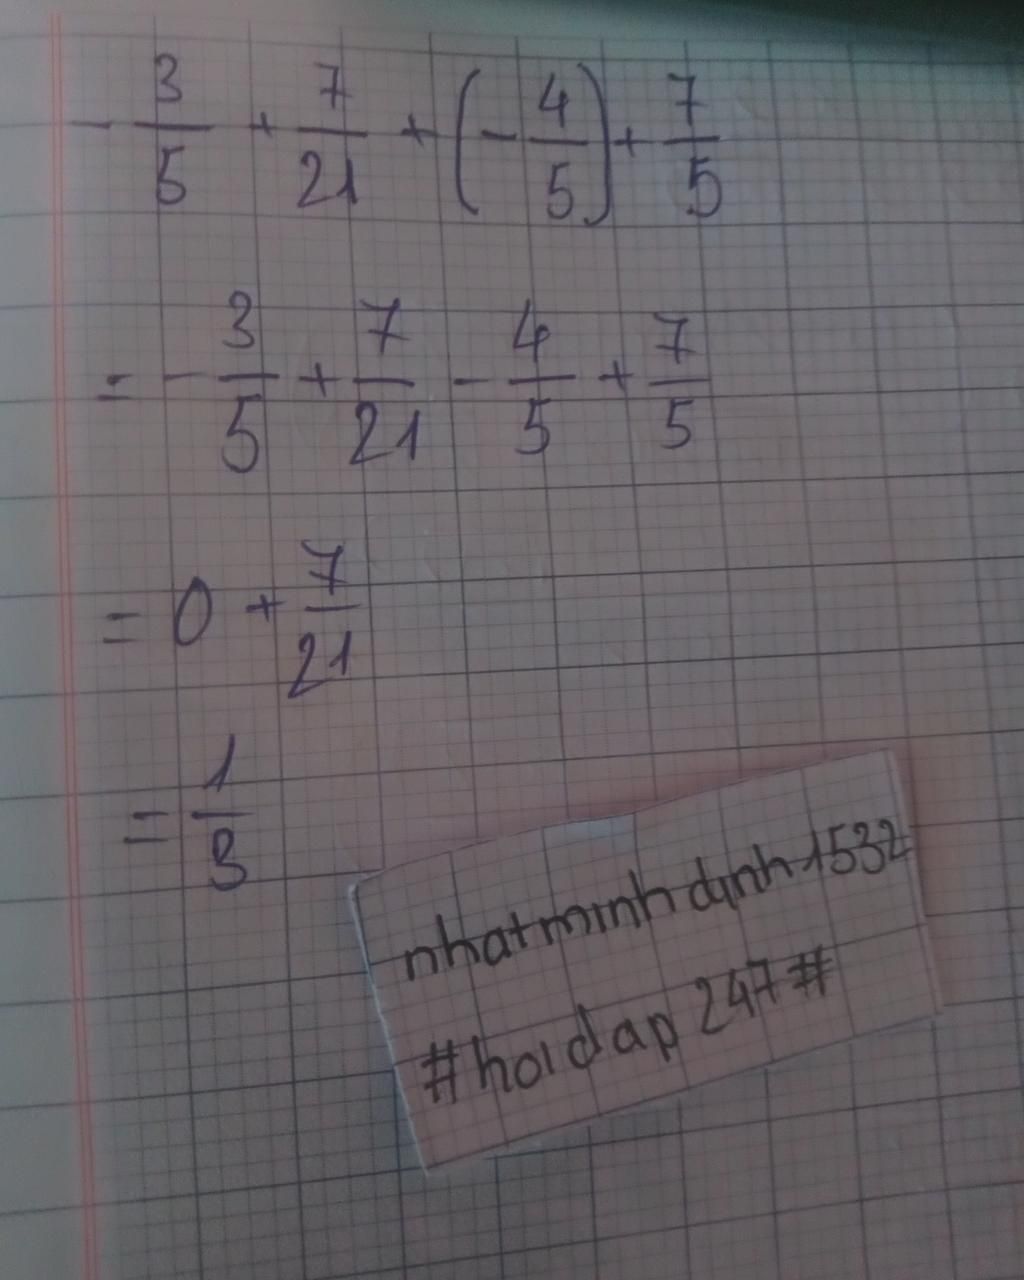 - 3/5 + 7/21 + (- 4/5) + 7/5
= - 3/5 + 7/21 - 4/5 + 7/5
= 0 + 7/21
= 1/3
nhatminhdinh1532
#hoidap247#